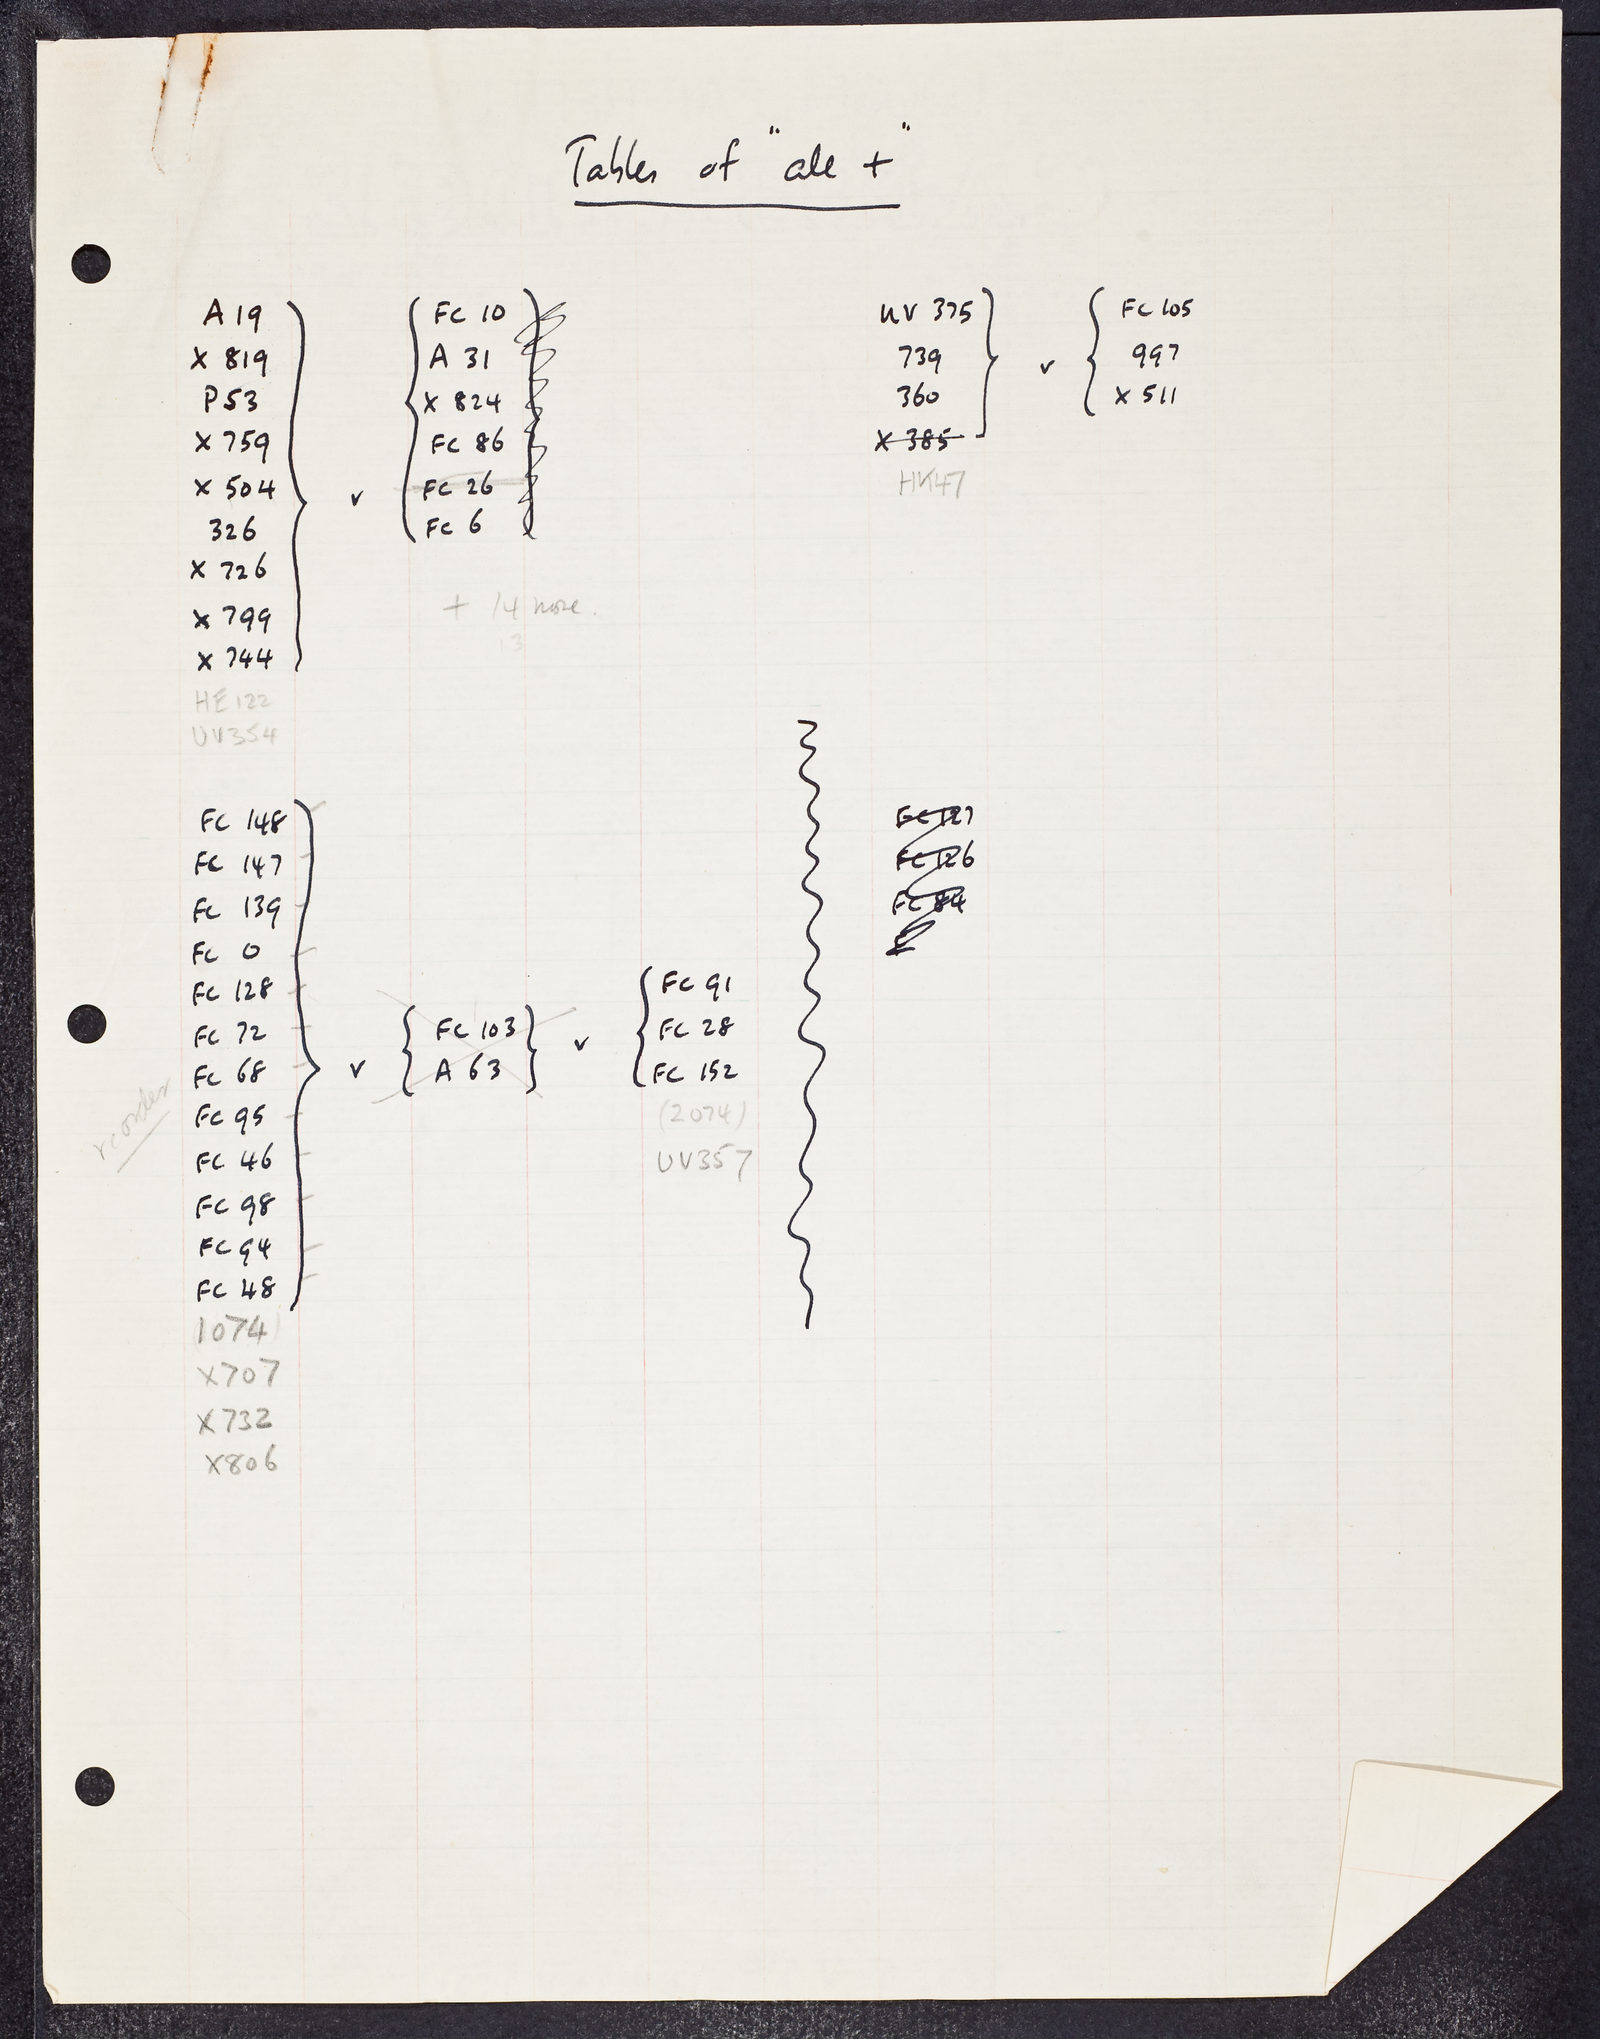 Tables of "all +"
A 19
X 819
P 53
X 759
X 504
326
X 726
X 799
X 744
HE 122
UV 354
v
FC 10
A 31
X 824
FC 86
FC 26
FC 6
+ 14 more.
13
UV 375
739
360
X 385
HK47
v
FC 105
997
X 511
FC 148
FC 147
FC 139
FC 0
FC 128
FC 72
FC 68
FC 95
FC 46
FC 98
FC 94
FC 48
1074
X707
X732
X806
reorder
v
FC 103
A 63
v
FC 91
FC 28
FC 152
(2074)
UV357
FC 127
FC 126
FC 84